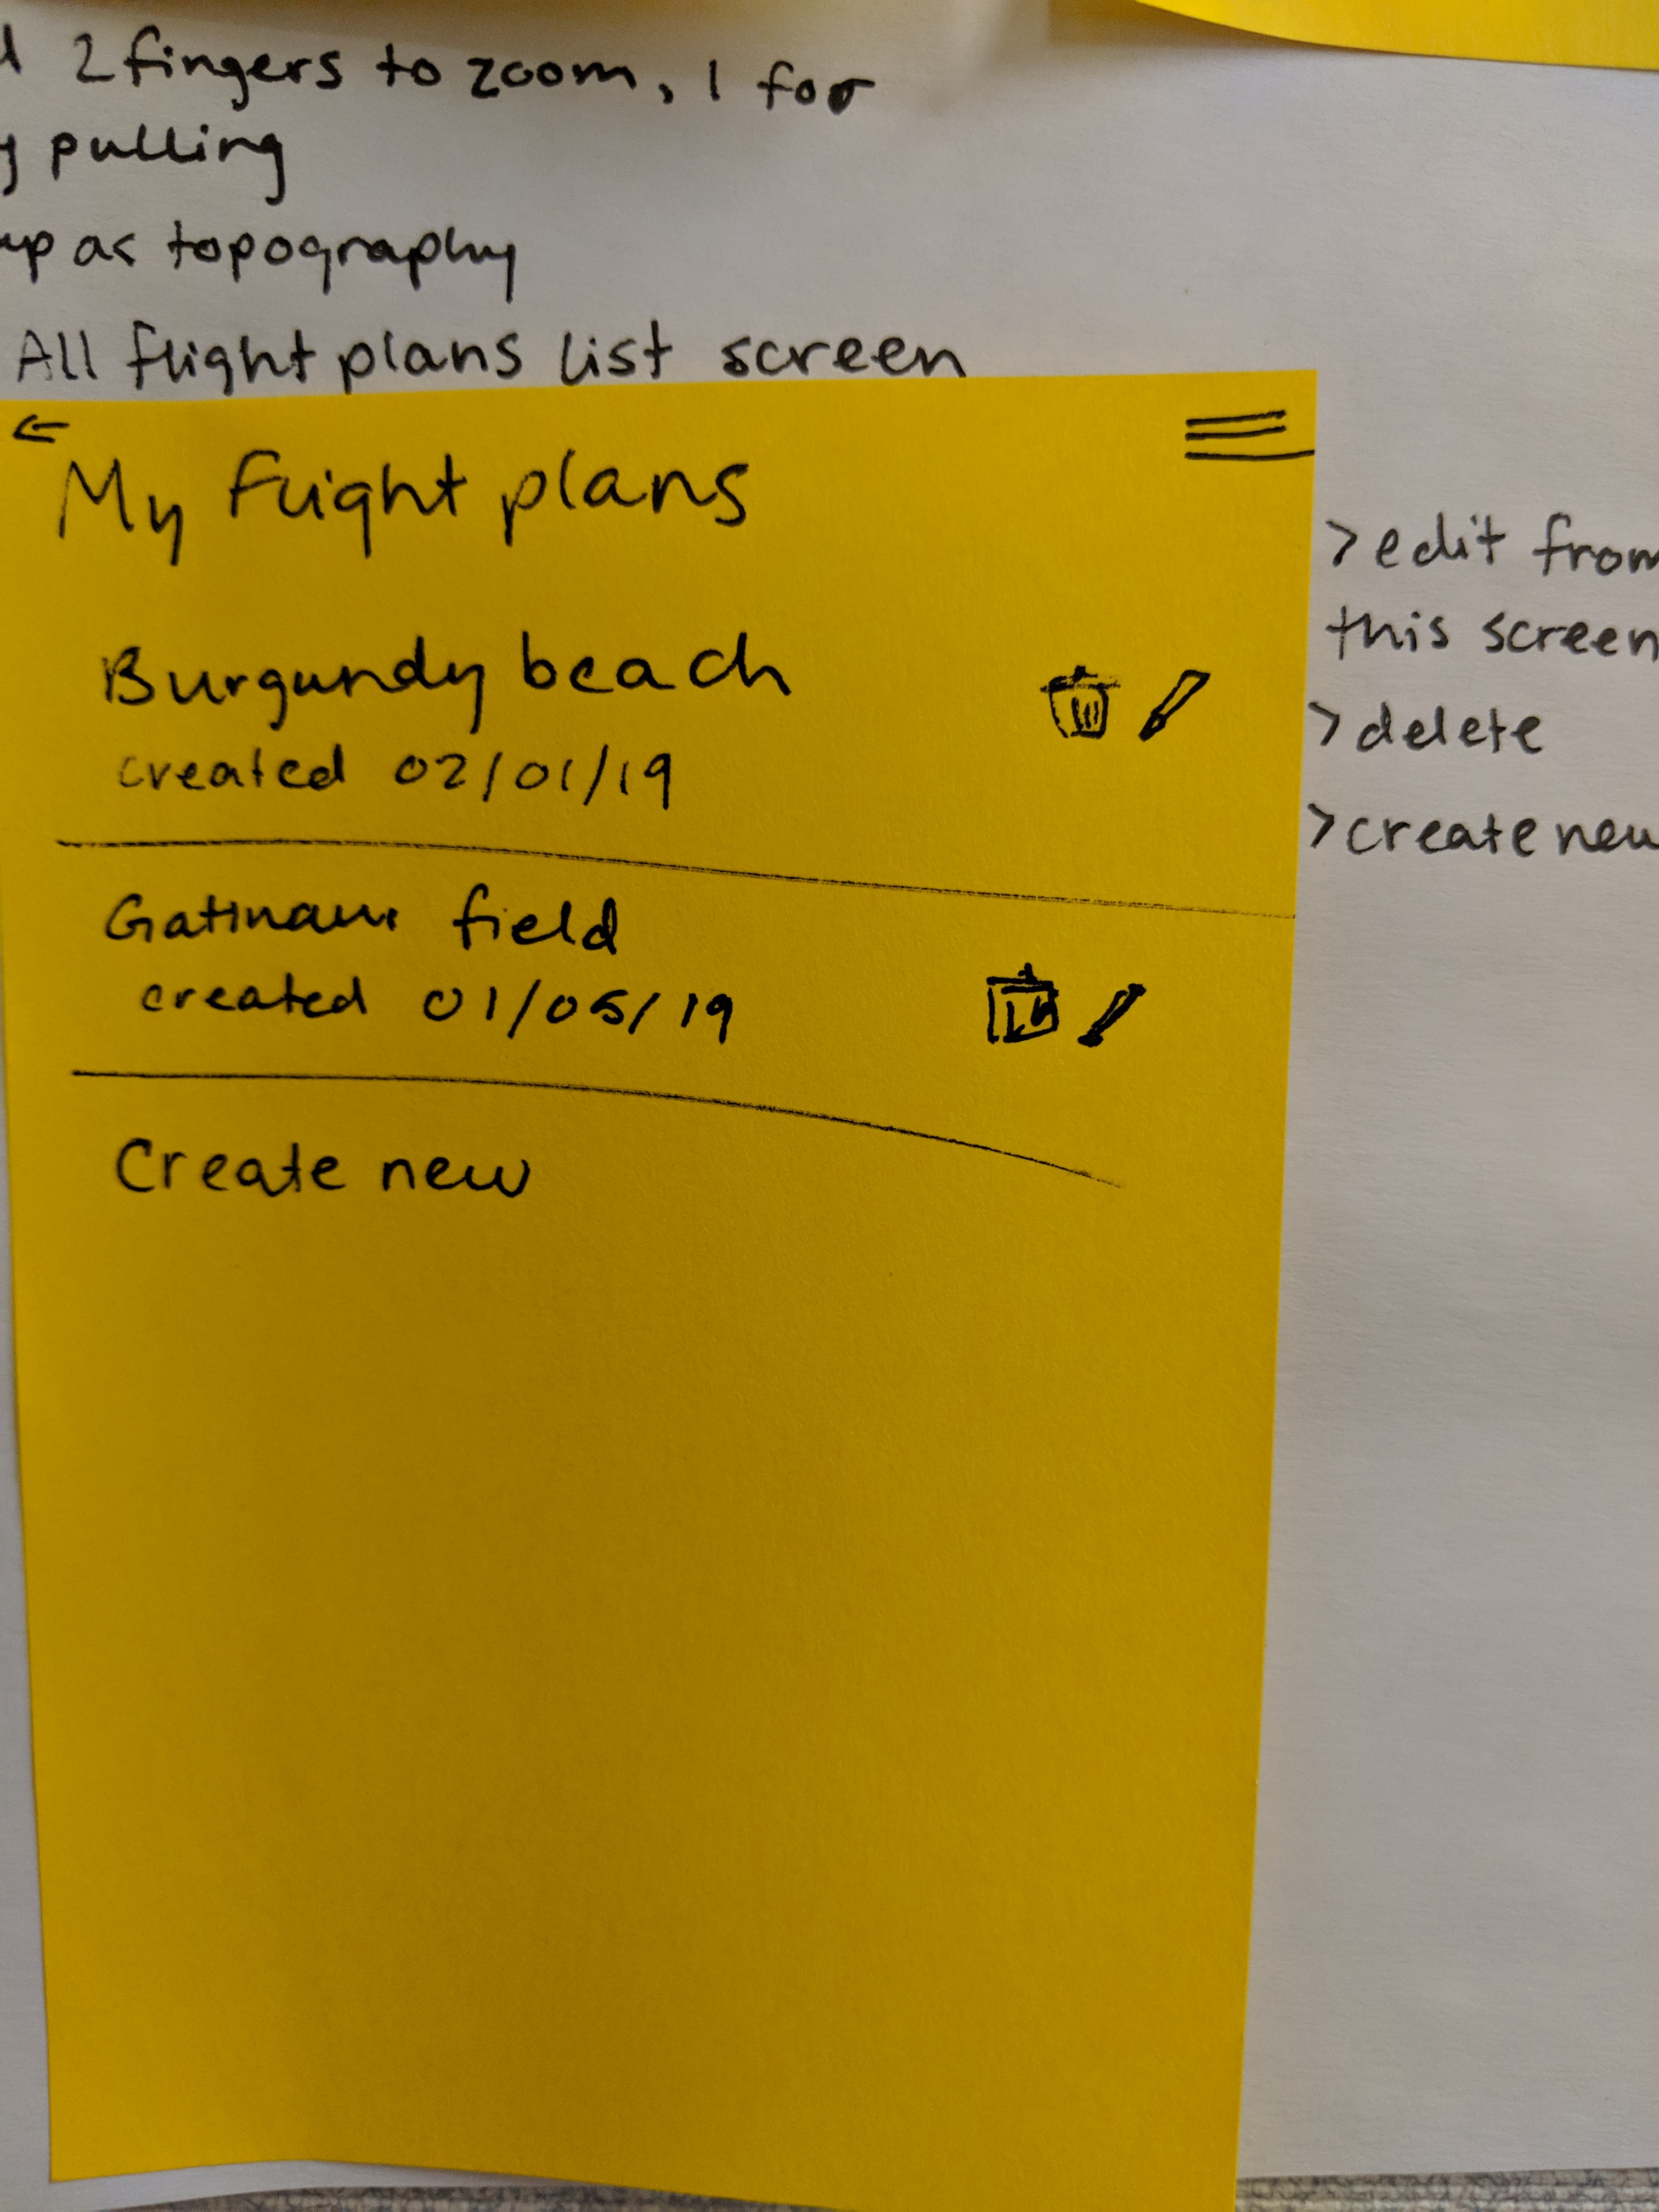 2 fingers to zoom, 1 for
pulling
up as topography
All flight plans list screen
My flight plans
Burgundy beach
created 02/01/19
Gatineau field
created 01/05/19
Create new
> edit from
this screen
> delete
> create new